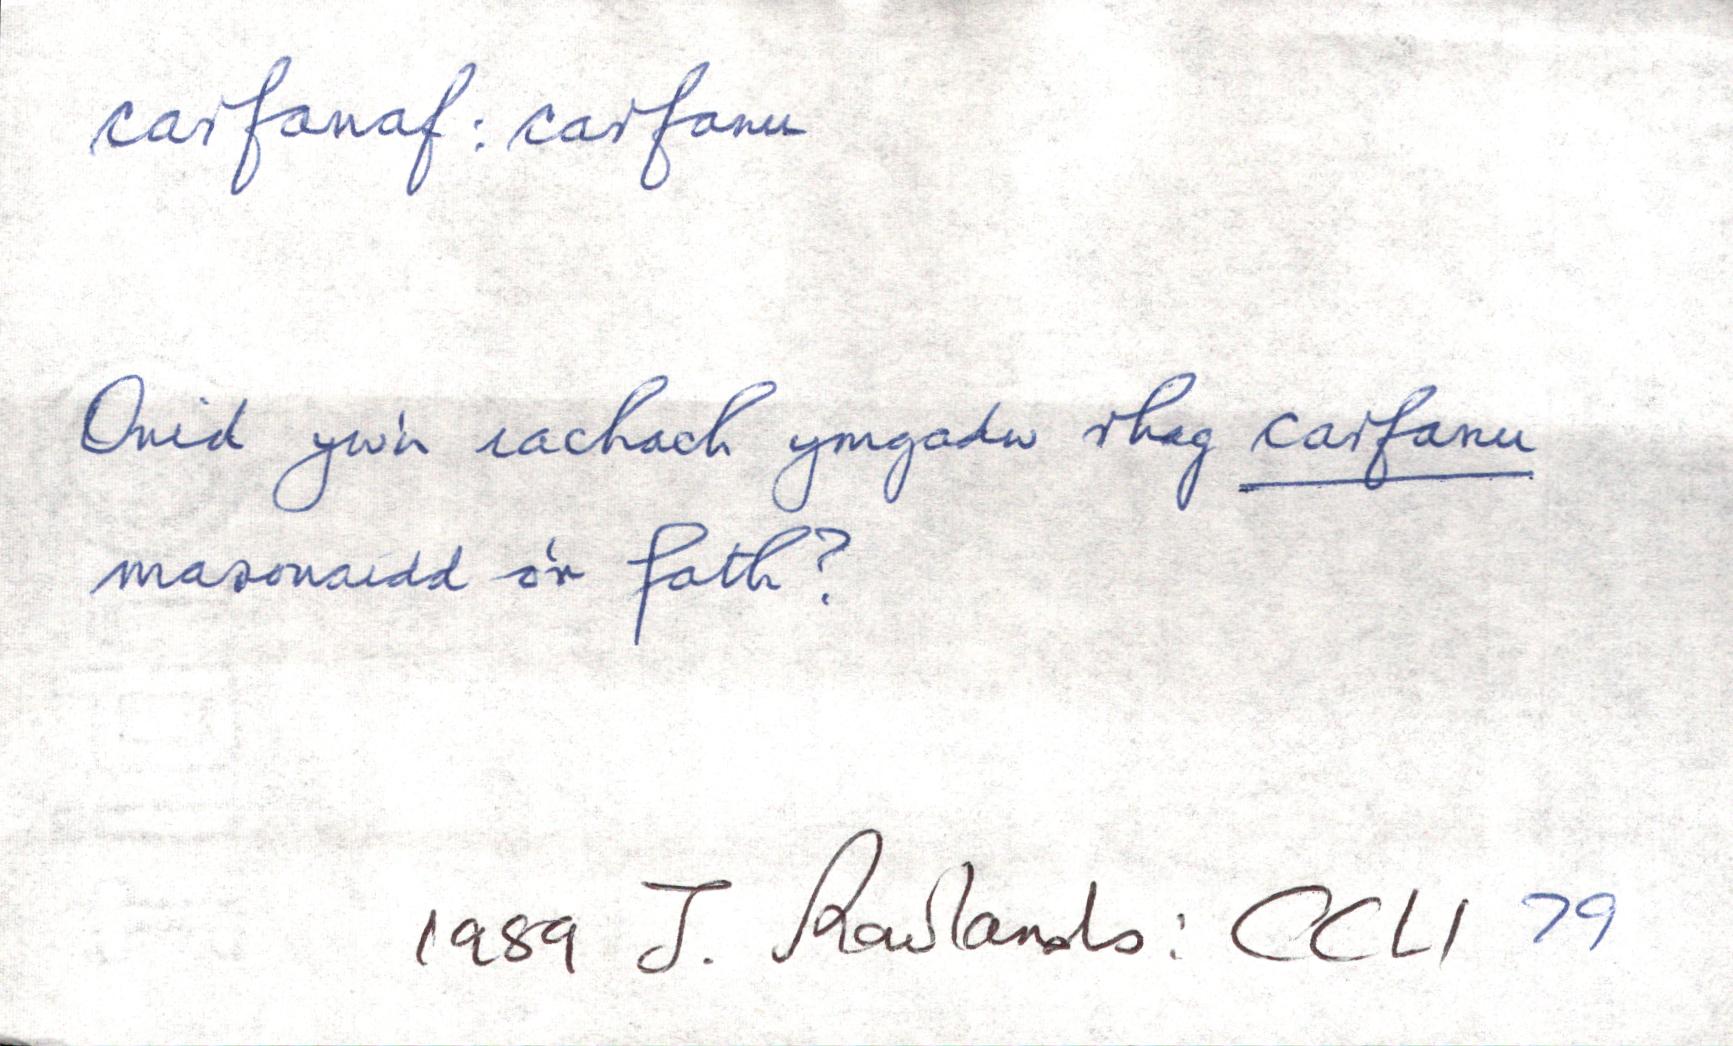 carfanaf: carfanu
Onid yw'n iachach ymgadw rhag carfanu
masonaidd o'r fath?
1989 J. Rowlands: CCLl 79